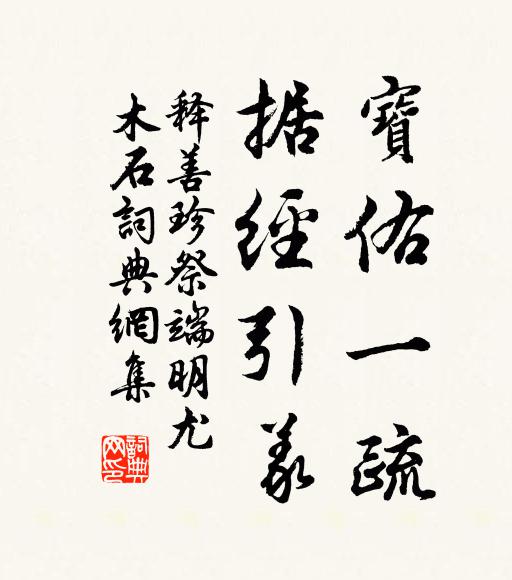 寶佑一疏
据經引義
释善珍祭端明尤
木石詞典網集
詞典网印